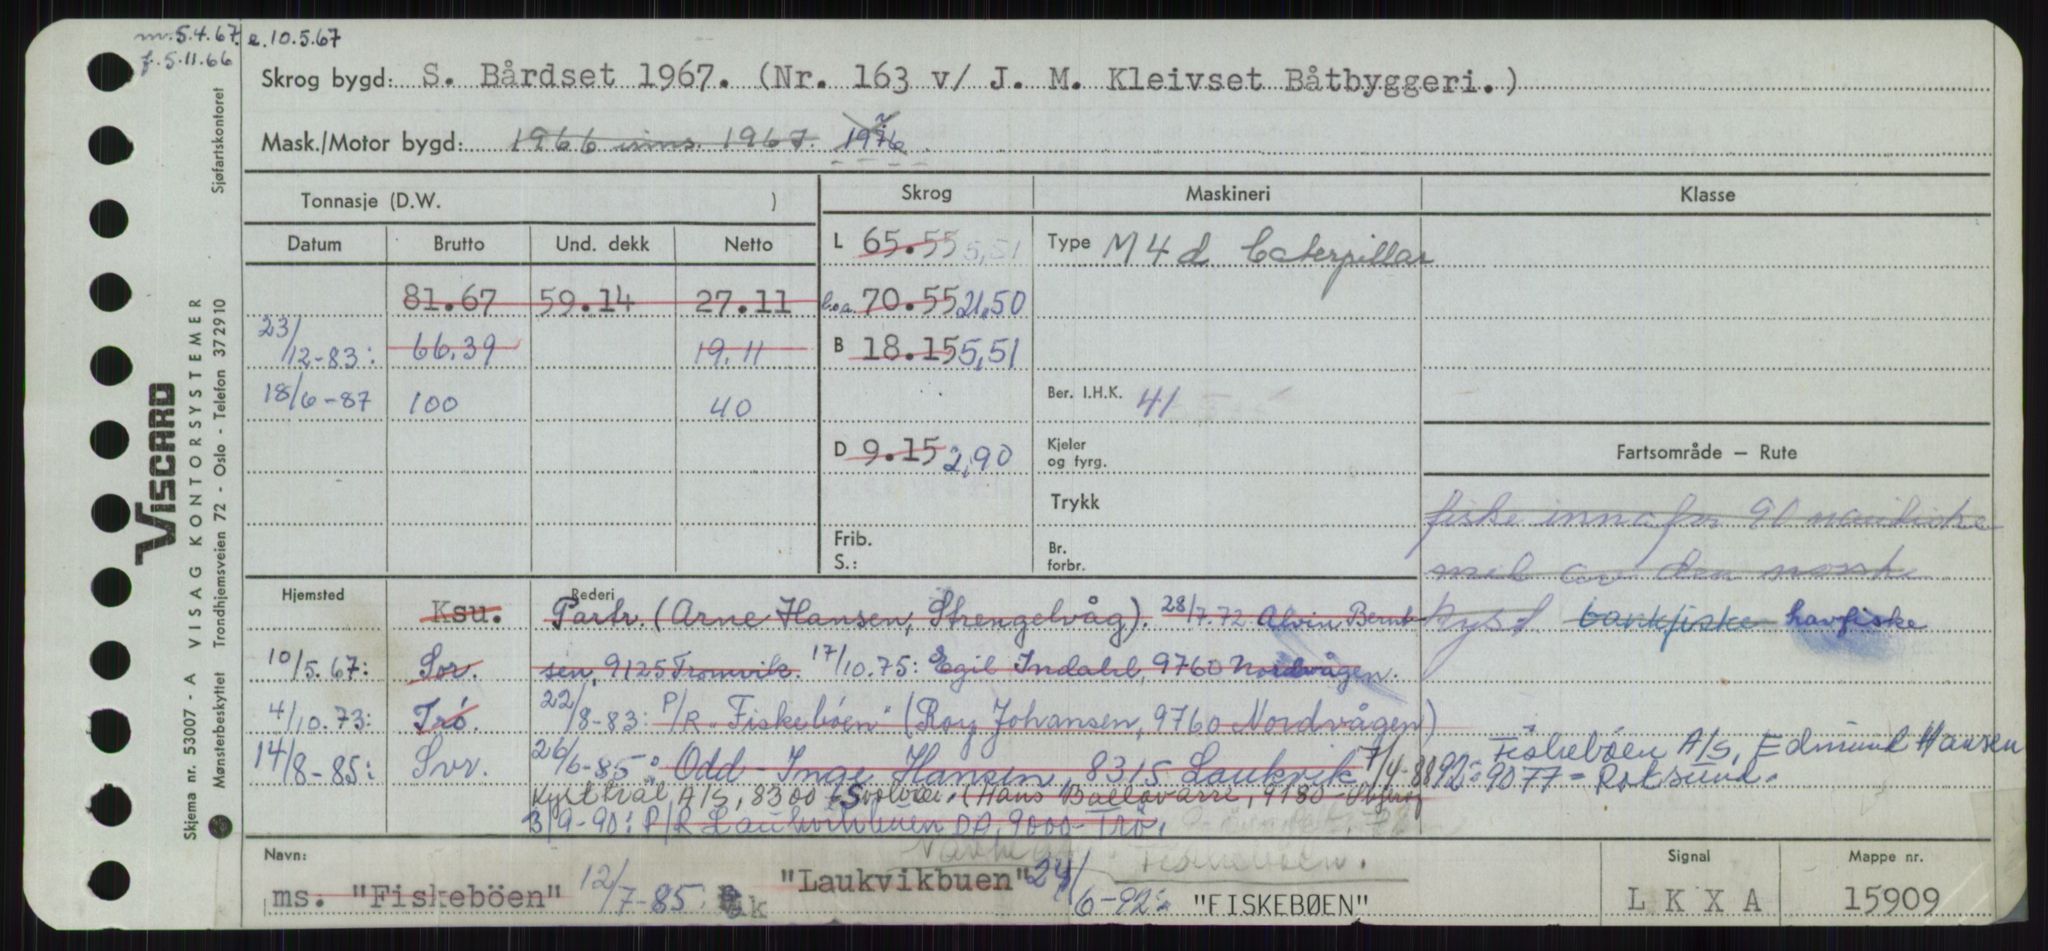 m. 5.4.67. e. 10.5.67
f. 5.11.66
Skrog bygd: S. Bårdset 1967. (Nr. 163 v/ J. M. Kleivset Båtbyggeri.)
Mask./Motor bygd: 1966 inns. 1967. 1976
Tonnasje (D.W. )
Skrog
Maskineri
Klasse
Datum Brutto Und. dekk Netto
L 65.55 5,51
Type M4d Caterpillar
81.67 59.14 27.11
l.o.a. 70.55 21,50
23/12-83: 66.39 19.11
B 18.15 5,51
18/6-87 100 40
Ber. I.H.K. 41
D 9.15 2,90
Kjeler og fyrg.
Fartsområde – Rute
Trykk
fiske innafor 90 nautiske
Frib.
S.:
Br. forbr.
mil av den norske
kyst bankfiske havfiske
Hjemsted
Rederi
Ksu. Partr. (Arne Hansen, Strengelvåg). 28/7.72 Alvin Bernt
10/5.67: Sor. sen, 9125 Tromvik. 17/10.75: Egil Indahl, 9760 Nordvågen.
4/10.73: Trö. 22/8-83: P/R "Fiskebøen" (Roy Johansen, 9760 Nordvågen)
14/8-85: Svr. 26/6-85: Odd-Inge Hansen, 8315 Laukvik 7/4-88
92: Fiskebøen A/S, Edmund Hansen
9077 - Roksund.
Kystkval A/S, 8300 Svolvær, (Hans 9180
3/9-90: P/R Laukvikbuen DA, 9000 - Trö,
Navn:
ms. "Fiskeböen" 12/7-85 k "Laukvikbuen" 24/6-92: "FISKEBØEN"
Fiskebøen.
Signal
L K X A
Mappe nr.
15909
Skjema nr. 53007 - A VISAG KONTORSYSTEMER Sjøfartskontoret
VISCARD
Mønsterbeskyttet Trondhjemsveien 72 - Oslo - Telefon 372910